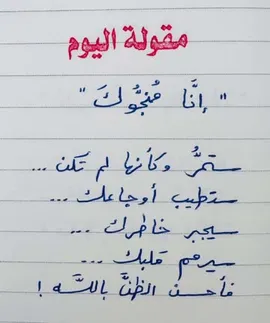 مقولة اليوم
" إنَّا مُنجُّوكَ "
ستمرُّ وكأنها لم تكن ...
ستطيب أوجاعك ...
سيجبر خاطرك ...
سيرمم قلبك ...
فأحسن الظنَّ باللَّه !